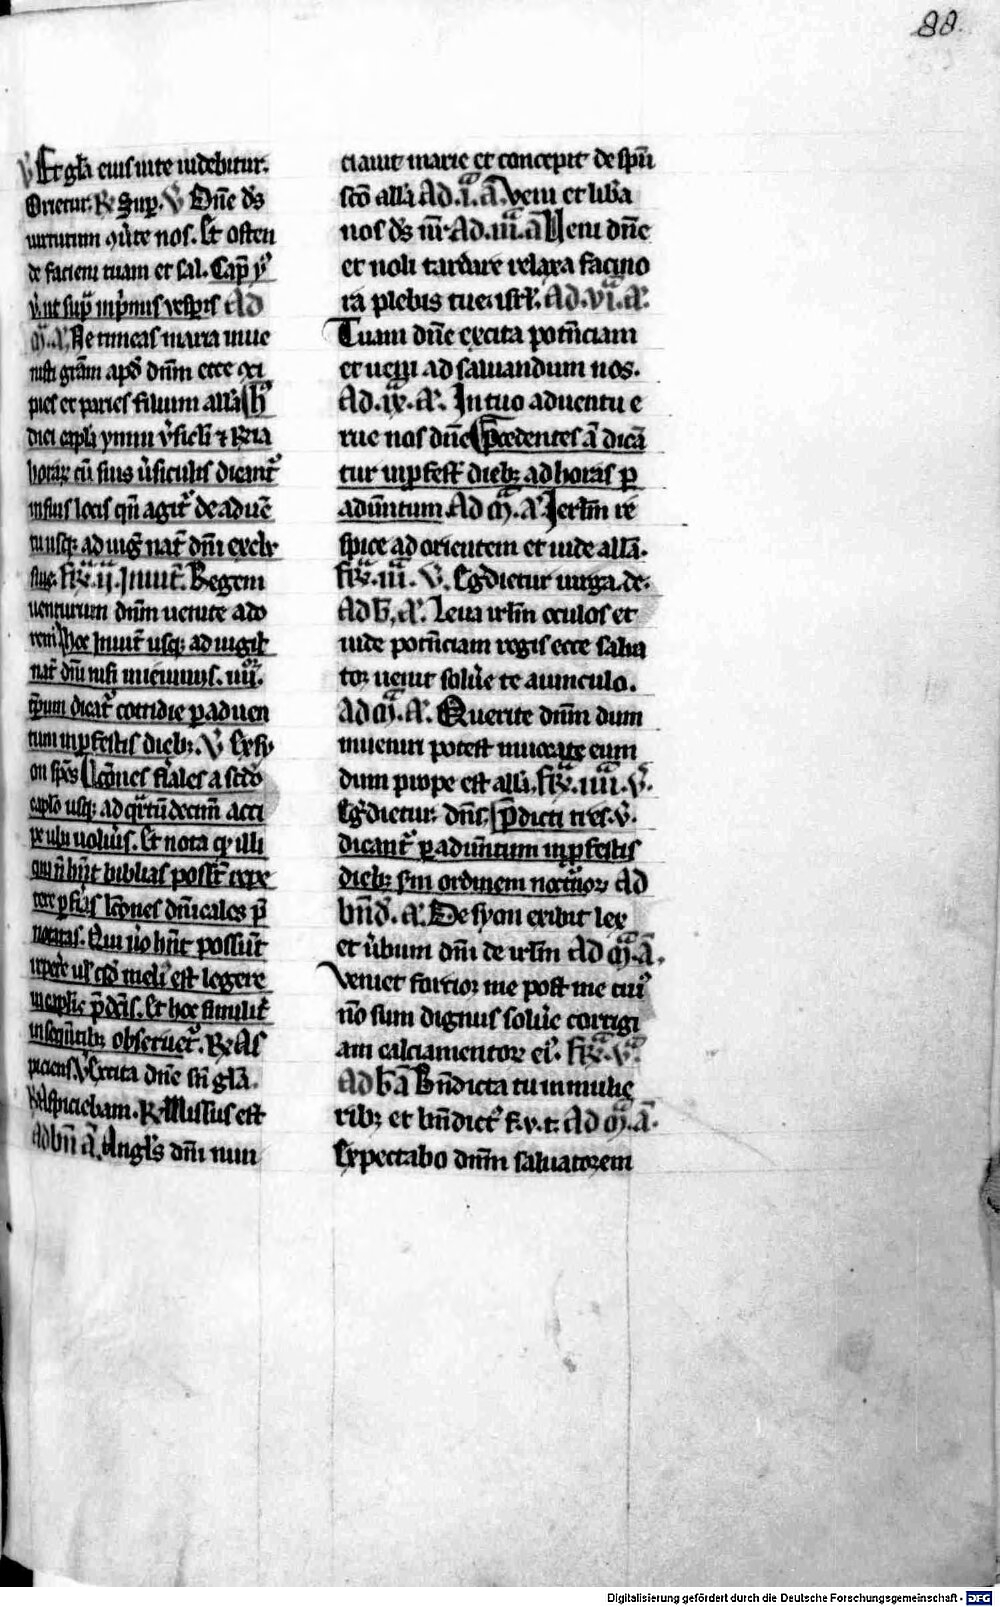 88.
V Et gl̄a eius in te uidebitur.
Orietur. R̄ Sup̄. V Dn̄e ds̄
uirtutum ꝯu̓te nos. Et osten
de faciem tuam et sal. Cap̄ yͫ
v̓. ut sup̄ in p̓mis vesp̓is Ad
M. A. Ne timeas maria inue
nisti grām apd̓ dn̄m ecce ꝯci
pies et paries filium all̄a h̓
dicī capl̓i ymni v̓sicl̓i ⁊ R̄ia
horaꝝ cū suis v̓siculis dicant᷑
in suis locis qn̄ agit᷑ de aduē
tu usqꝫ ad uig̓ nat̓ dn̄i exclu
siue. fr̄. ii. Inuit̄. Regem
uenturum dn̄m uenite ado
rem̓ Hoc Inuit̄ usqꝫ ad uigil̓
nat̓ dn̄i nisi
ꝑum dicat᷑ cottidie ꝑ aduen
tum in ꝓfestis diebꝫ. V Ex sy
on spēs Lc̄ones fiales a scd̓o
cap̄lo usqꝫ ad q̓rtūdecim̄ acci
pe ubi uolu̓is. Et nota qͩ illi
qui n̄ hn̄t biblias poss̄t recipe
lc̄ones dn̄icales p̄
notatas. Qui u̓o hn̄t possūt
meli᷑ est legere
Et hoc similit̓
in seqn̄tibꝫ obseruet᷑. R̄ As
piciens. V Excita dn̄e sn̄ gl̄a.
R̄ Aspiciebam. R̄ Missus est
Ad bn̄ ā. Angl̄s dn̄i nun
ciauit marie et concepit de spū
scō all̄a Ad. i. ā. Veni et lib̓a
nos ds̄ n̄r. Ad. iii. ā Ueni dn̄e
et noli tardare relaxa facino
ra plebis tue isrl̓. Ad. vi. A.
Tuam dn̄e excita potn̄ciam
et ueni ad saluandum nos.
Ad. ix. A. In tuo aduentu e
rue nos dn̄e p̄cedentes ā dicā
tur in ꝓfest̓ diebꝫ ad horas ꝑ
aduntum. Ad M. A Ierl̄m re
spice ad orientem et uide all̄a.
fr̄. iii. V. Egdietur uirga. de.
Ad b̄. A. Leua irl̄m oculos et
uide potn̄ciam regis ecce salua
tor uenit solu̓e te a uinculo.
Ad M. A. Querite dn̄m dum
inueniri potest inuocate eum
dum prope est all̄a. fr̄. iiii. V.
Egdietur. dn̄s. p̄dicti tres. V.
dicant᷑ ꝑ aduntum in ꝓfestis
diebꝫ sm̄ ordinem noctnoꝝ Ad
bn̄d. A. De syon exibit lex
et u̓bum dn̄i de irl̄m Ad M. ā.
Veniet fortior me post me cui᷑
nō sum dignus solu̓e corrigi
am calciamentoꝝ ei᷑. fr̄. v.
Ad b̄ ā Bn̄dicta tu in mulie
ribꝫ et bn̄dict᷑ f. v. t. Ad M. ā.
Expectabo dn̄m saluatorem
Digitalisierung gefördert durch die Deutsche Forschungsgemeinschaft - DFG